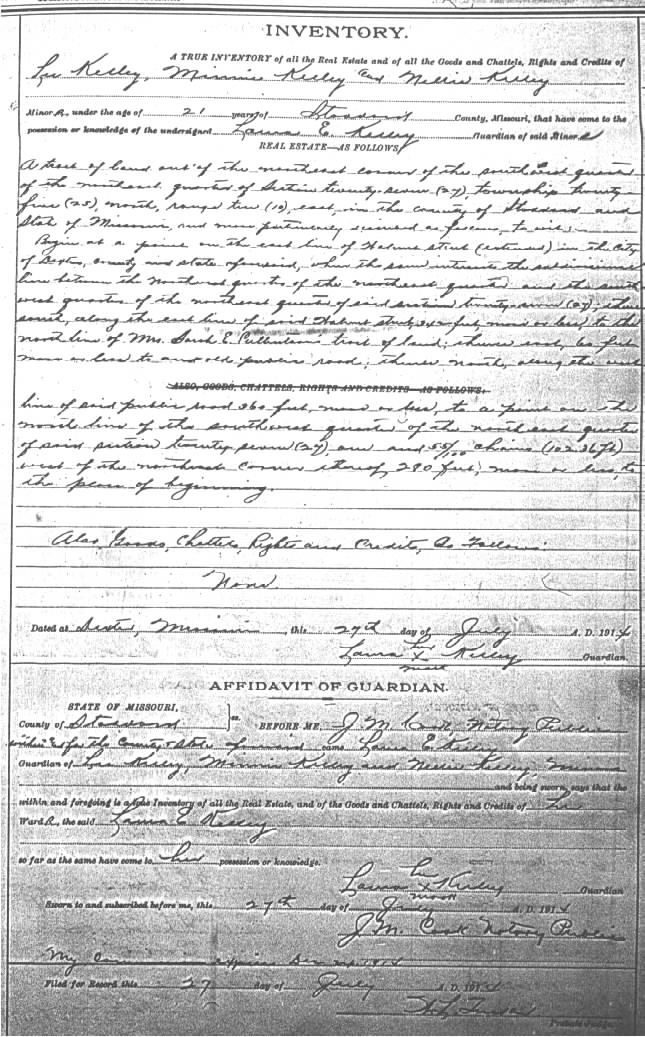 INVENTORY.
A TRUE INVENTORY of all the Real Estate and of all the Goods and Chattels, Rights and Credits of
Kelley, Minnie Kelley and Nellie Kelley
Minors, under the age of 21 years, of Stoddard County, Missouri, that have come to the
possession or knowledge of the undersigned Laura E. Kelley Guardian of said Minors
REAL ESTATE—AS FOLLOWS
A tract of land out of the northeast corner of the southwest quarter
of the northeast quarter of Section twenty-seven (27), township twenty
five (25), north, range ten (10), east, in the county of Stoddard and
State of Missouri, and more particularly described as follows, to wit:
Begin at a point on the east line of Walnut street (extended) in the City
of Dexter, county and state aforesaid, where the same intersects the subdivision
line between the Northwest quarter of the northeast quarter and the south
west quarter of the northeast quarter of said section twenty-seven (27), thence
south, along the east line of said Walnut street, feet, more or less, to the
north line of Mrs. Sarah E. tract of land; thence east, 60 feet
more or less to an old public road; thence north, along the west
ALSO, GOODS, CHATTELS, RIGHTS AND CREDITS—AS FOLLOWS.
line of said public road 360 feet, more or less, to a point on the
north line of the southwest quarter of the northeast quarter
of said section twenty-seven (27) one and 55/100 chains (102.36 ft)
west of the northeast corner thereof, 290 feet, more or less, to
the place of beginning.
Also, Goods, Chattels, Rights and Credits, As Follows:
None.
Dated at Dexter, Missouri, this 27th day of July A. D. 1914
her
Laura X Kelley Guardian.
mark
AFFIDAVIT OF GUARDIAN.
STATE OF MISSOURI,
County of Stoddard } ss. BEFORE ME, J. M. Cook Notary Public
within & for the County & State aforesaid came Laura E Kelley
Guardian of Kelley, Minnie Kelley and Nellie Kelley, Minors
and being sworn says that the
within and foregoing is a true Inventory of all the Real Estate, and of the Goods and Chattels, Rights and Credits of her
Wards, the said Laura E Kelley
so far as the same have come to her possession or knowledge.
her
Laura X Kelley Guardian
mark
Sworn to and subscribed before me, this 27th day of July A. D. 1914
J. M. Cook Notary Public
My Commission expires
Filed for Record this 27 day of July A. D. 1914
Probate Judge.